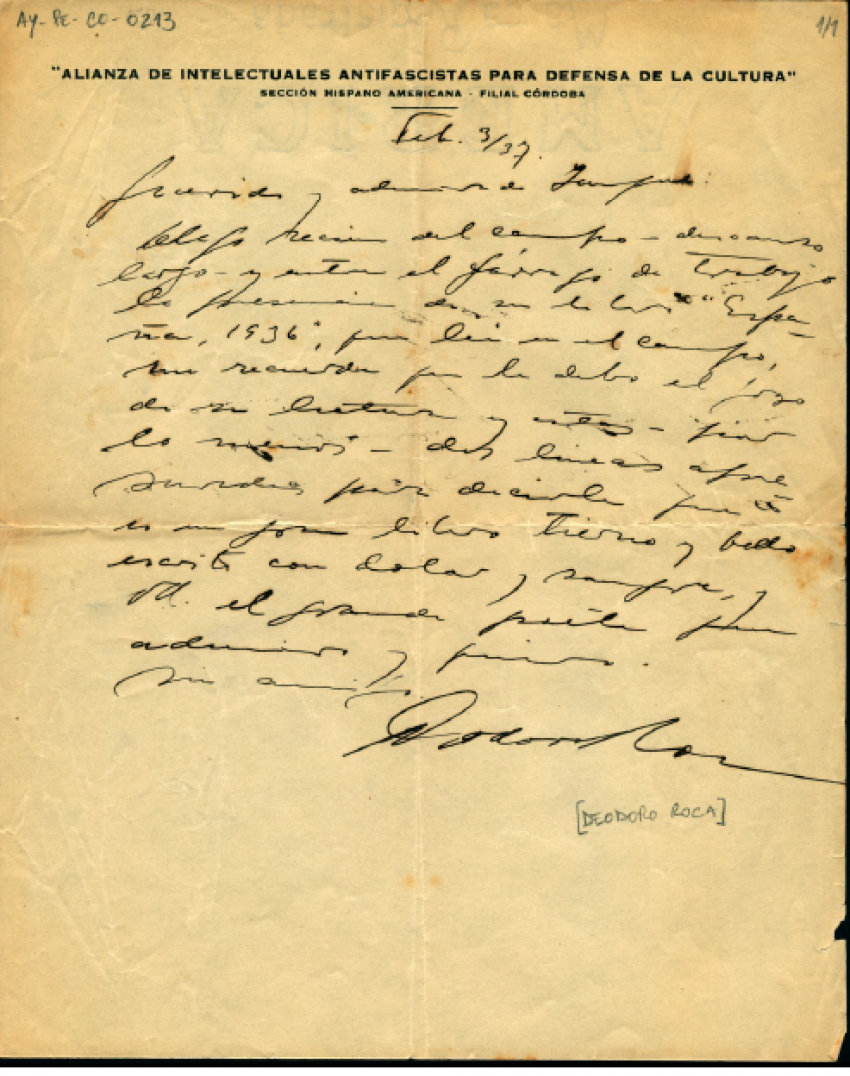 AY-PE-CO-0213
1/1
"ALIANZA DE INTELECTUALES ANTIFASCISTAS PARA DEFENSA DE LA CULTURA"
SECCIÓN HISPANO AMERICANA - FILIAL CÓRDOBA
Feb. 3/37.
Querido y admirado
Llego recien del campo - descanso
largo - y entre el fárrago de trabajo
la presencia de su libro "Espa-
ña, 1936", que leí en el campo,
me recuerda que le debo el gozo
de su lectura y estas - por
lo menos - dos lineas apre
suradas para decirle que
es un gran libro tierno y bello
escrito con dolor y sangre, y
Vd. el grande poeta que
admiro y
Su amigo
Deodoro Roca
[DEODORO ROCA]